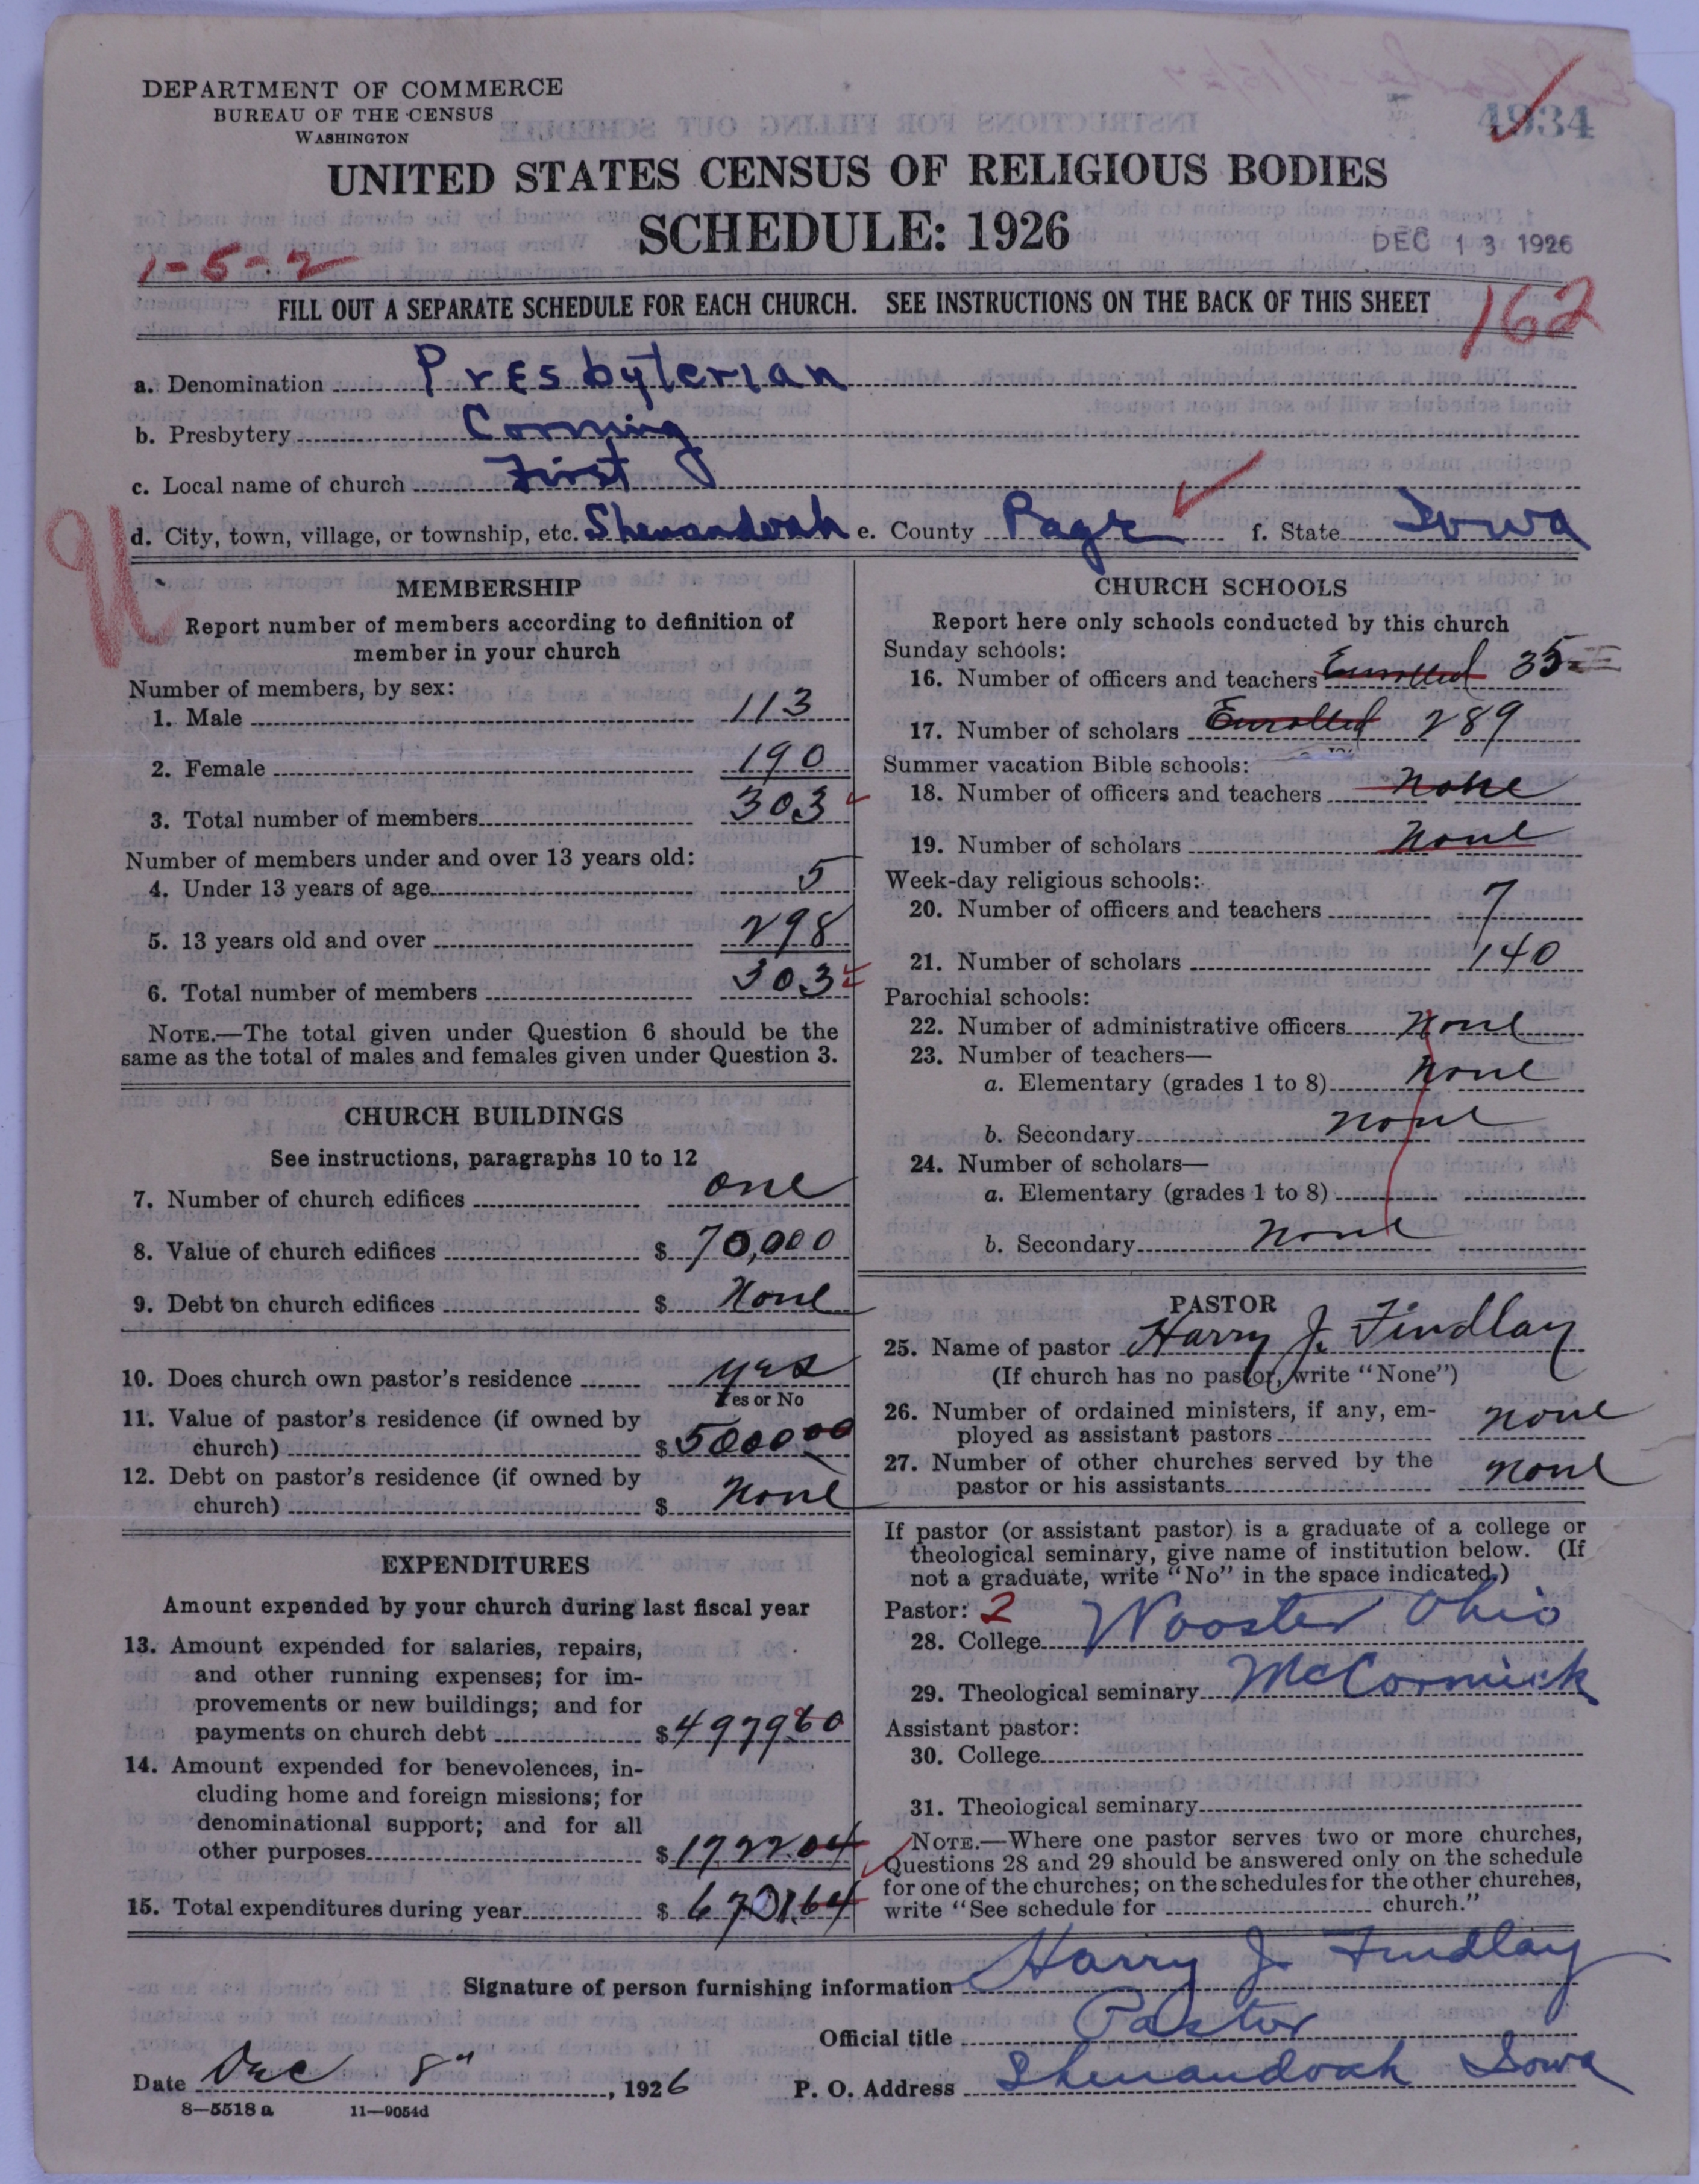 DEPARTMENT OF COMMERCE
BUREAU OF THE CENSUS
WASHINGTON
4934
UNITED STATES CENSUS OF RELIGIOUS BODIES
SCHEDULE: 1926
DEC 13 1926
1-5-2
FILL OUT A SEPARATE SCHEDULE FOR EACH CHURCH. SEE INSTRUCTIONS ON THE BACK OF THIS SHEET
162
a. Denomination Presbyterian
b. Presbytery Corning
c. Local name of church First
d. City, town, village, or township, etc. Shenandoah e. County Page f. State Iowa
MEMBERSHIP
Report number of members according to definition of
member in your church
Number of members, by sex:
1. Male 113
2. Female 190
3. Total number of members 303
Number of members under and over 13 years old:
4. Under 13 years of age 5
5. 13 years old and over 298
6. Total number of members 303
NOTE.—The total given under Question 6 should be the
same as the total of males and females given under Question 3.
CHURCH BUILDINGS
See instructions, paragraphs 10 to 12
7. Number of church edifices one
8. Value of church edifices $ 70,000
9. Debt on church edifices $ None
10. Does church own pastor's residence yes
Yes or No
11. Value of pastor's residence (if owned by
church) $ 5000 00
12. Debt on pastor's residence (if owned by
church) $ None
EXPENDITURES
Amount expended by your church during last fiscal year
13. Amount expended for salaries, repairs,
and other running expenses; for im-
provements or new buildings; and for
payments on church debt $ 4979 60
14. Amount expended for benevolences, in-
cluding home and foreign missions; for
denominational support; and for all
other purposes $ 1722.04
15. Total expenditures during year $ 6701.64
CHURCH SCHOOLS
Report here only schools conducted by this church
Sunday schools:
16. Number of officers and teachers Enrolled 35
17. Number of scholars Enrolled 289
Summer vacation Bible schools:
18. Number of officers and teachers None
19. Number of scholars None
Week-day religious schools:
20. Number of officers and teachers 7
21. Number of scholars 140
Parochial schools:
22. Number of administrative officers None
23. Number of teachers—
a. Elementary (grades 1 to 8) None
b. Secondary None
24. Number of scholars—
a. Elementary (grades 1 to 8)
b. Secondary None
PASTOR
25. Name of pastor Harry J. Findlay
(If church has no pastor, write "None")
26. Number of ordained ministers, if any, em-
ployed as assistant pastors none
27. Number of other churches served by the
pastor or his assistants none
If pastor (or assistant pastor) is a graduate of a college or
theological seminary, give name of institution below. (If
not a graduate, write "No" in the space indicated.)
Pastor: 2
28. College Wooster Ohio
29. Theological seminary McCormick
Assistant pastor:
30. College
31. Theological seminary
NOTE.—Where one pastor serves two or more churches,
Questions 28 and 29 should be answered only on the schedule
for one of the churches; on the schedules for the other churches,
write "See schedule for church."
Signature of person furnishing information Harry J. Findlay
Official title Pastor
Date Dec 8", 1926 P. O. Address Shenandoah Iowa
8—5518 a 11—9054d